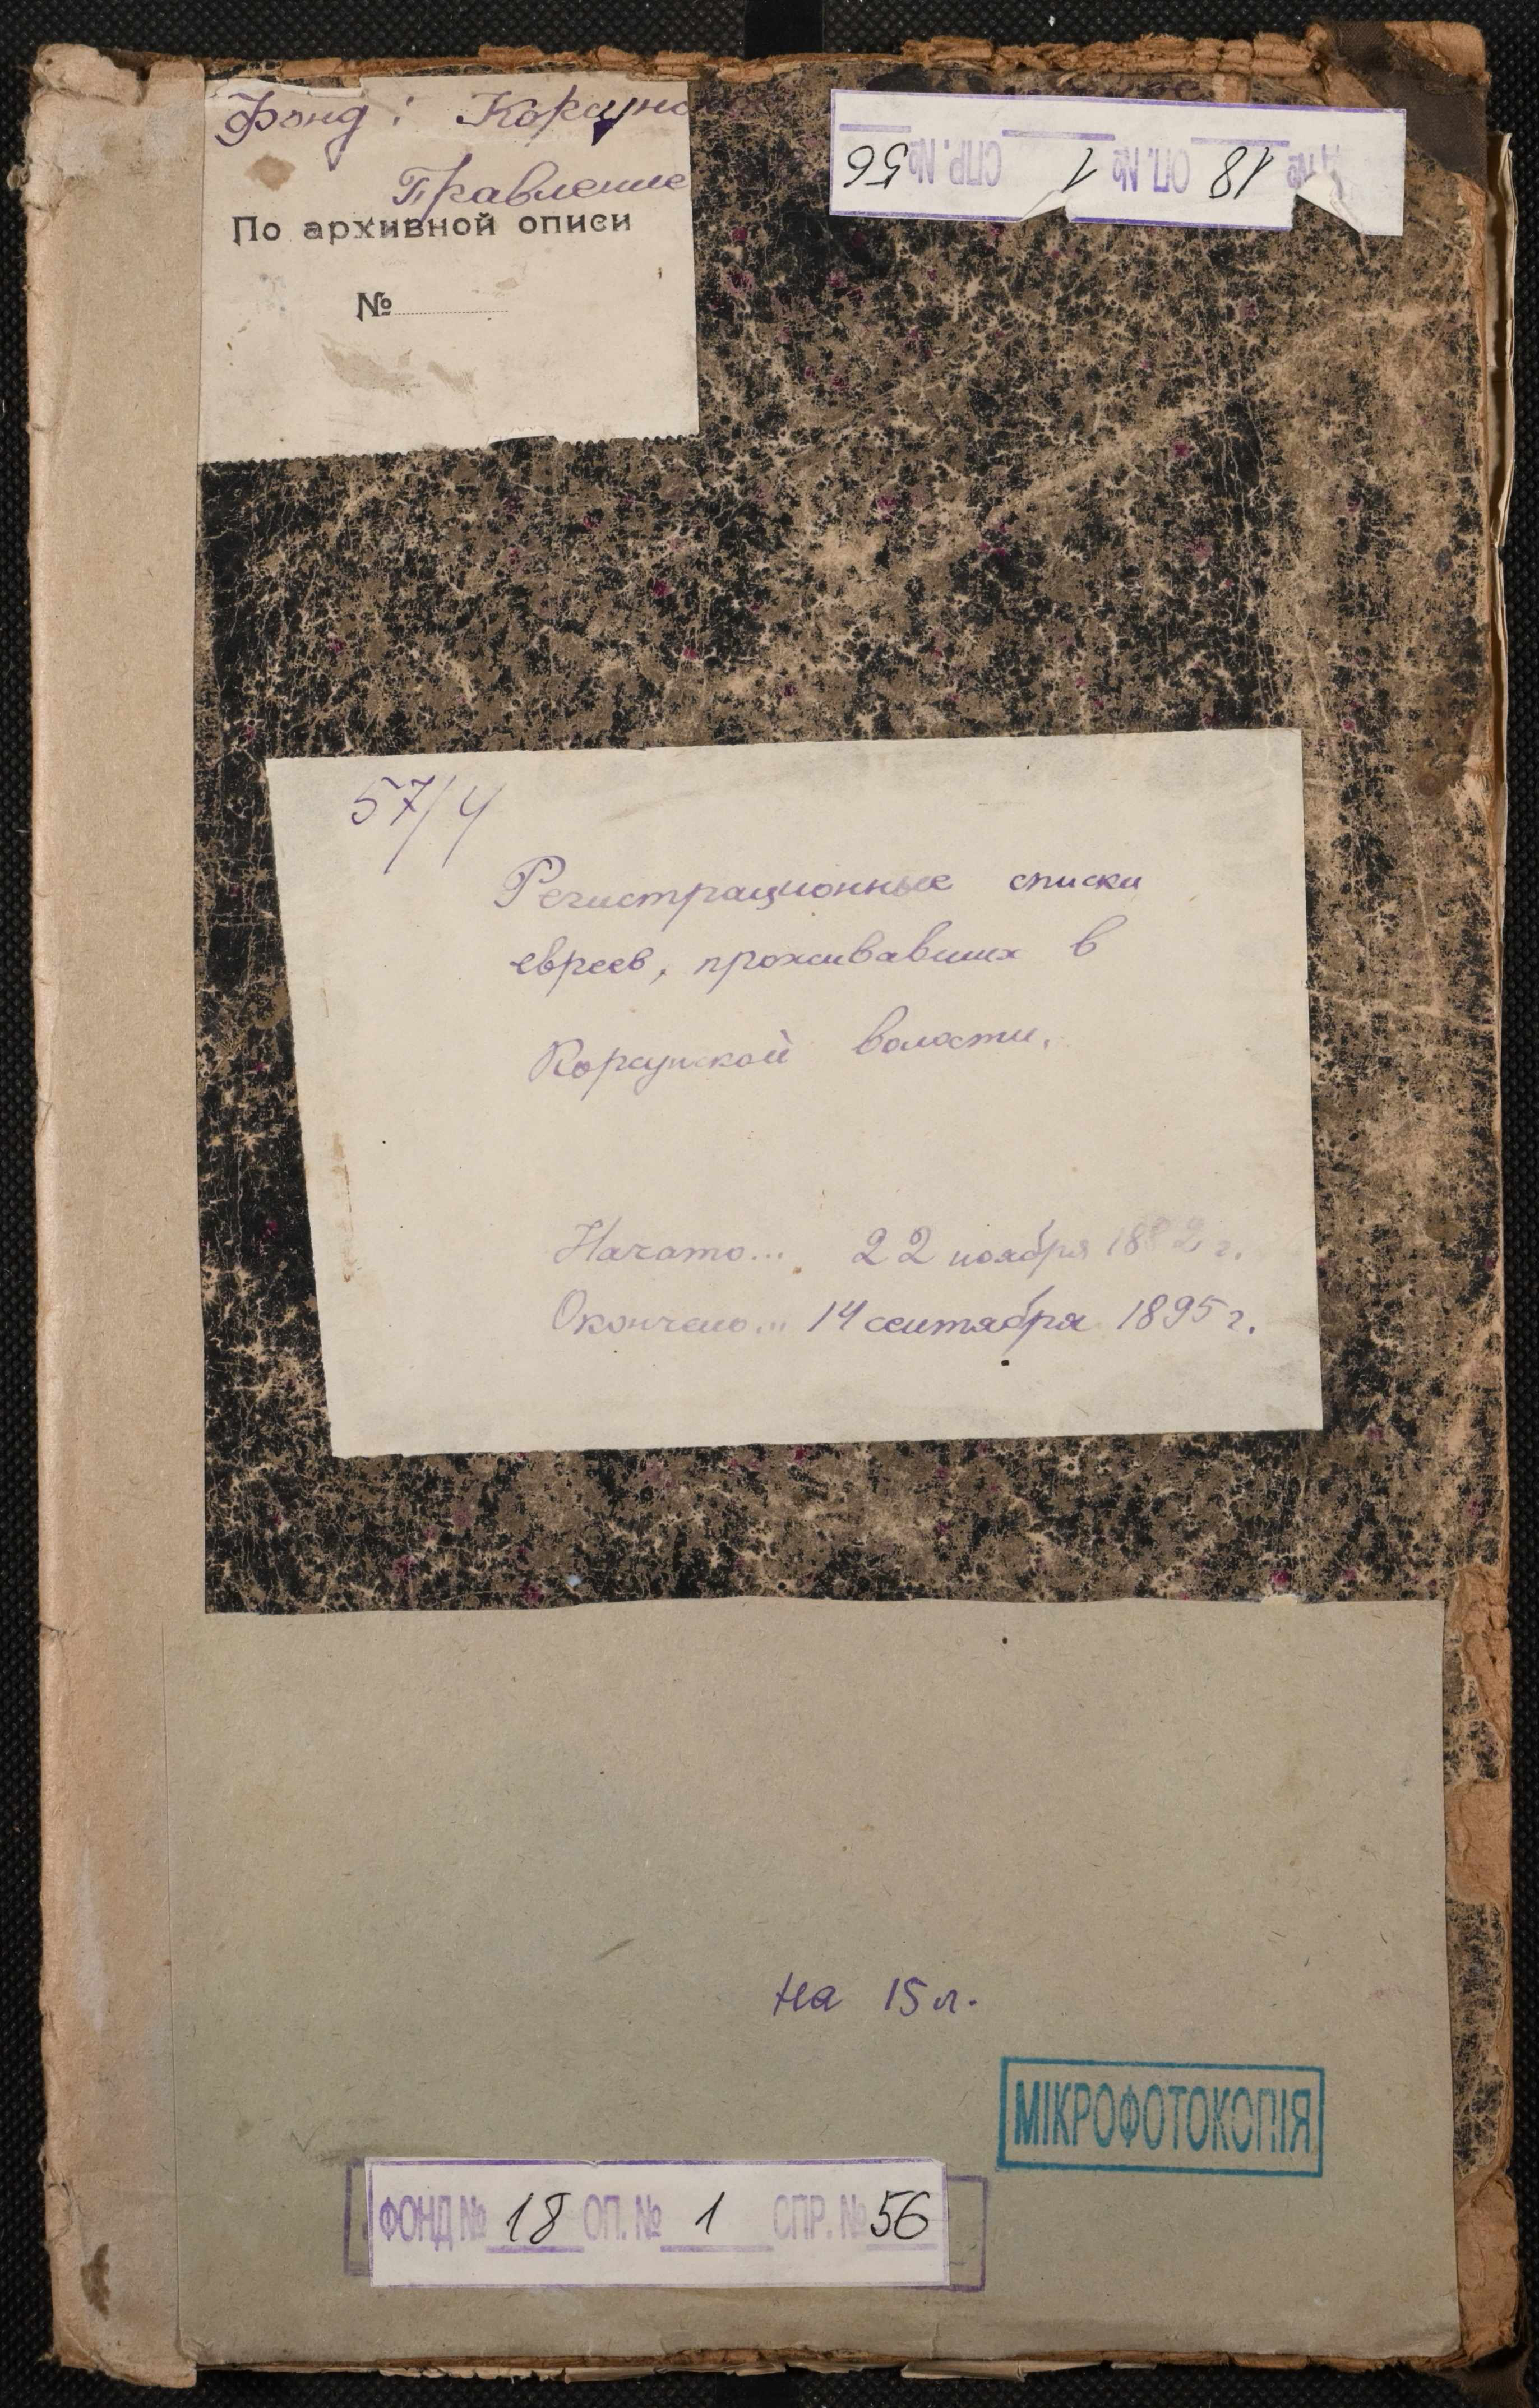 Фонд: Корсунс
Правление
По архивной описи
№
№ 18 ОП. № 1 СПР. № 56
57/4
Регистрационные списки
евреев, проживавших в
Корсунской волости.
Начато... 22 ноября 1882 г.
Окончено... 14 сентября 1895 г.
на 15 л.
МІКРОФОТОКОПІЯ
ФОНД № 18 ОП. № 1 СПР. № 56